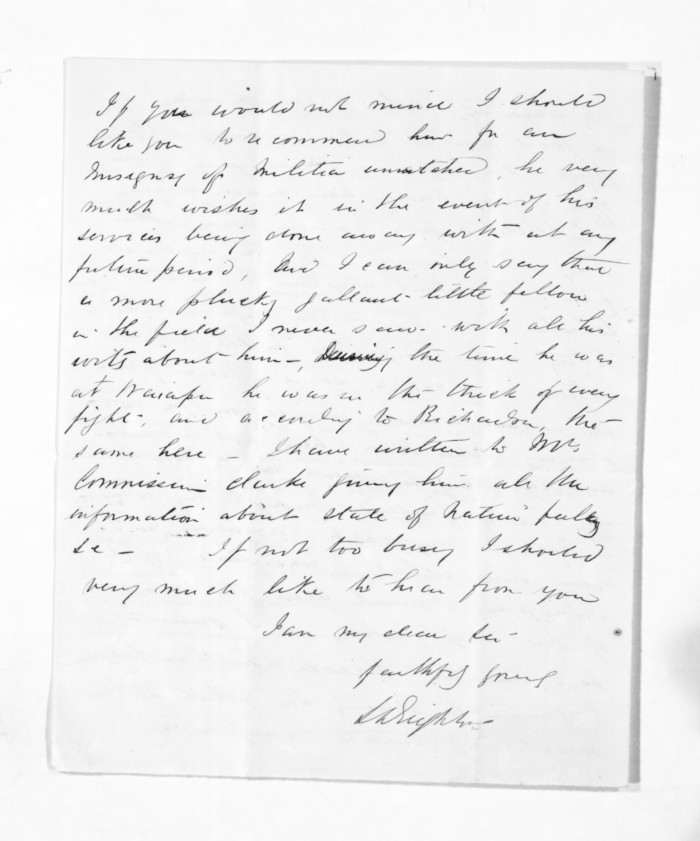 If you would not mind I should
like you to recommend him for an
Ensigncy of Militia unattached, he very
much wishes it in the event of his
services being done away with at any
future period, And I can only say that
a more plucky gallant little fellow
in the field I never saw - with all his
wits about him -, During the time he was
at Waiapu he was in the thick of every
fight -, and according to Richardson, the
same here - I have written to Mr
Commissin Clarke giving him all the
information about state of Native feeling
&c - If not too busy I should
very much like to hear from you
I am my dear Sir
faithfully yours